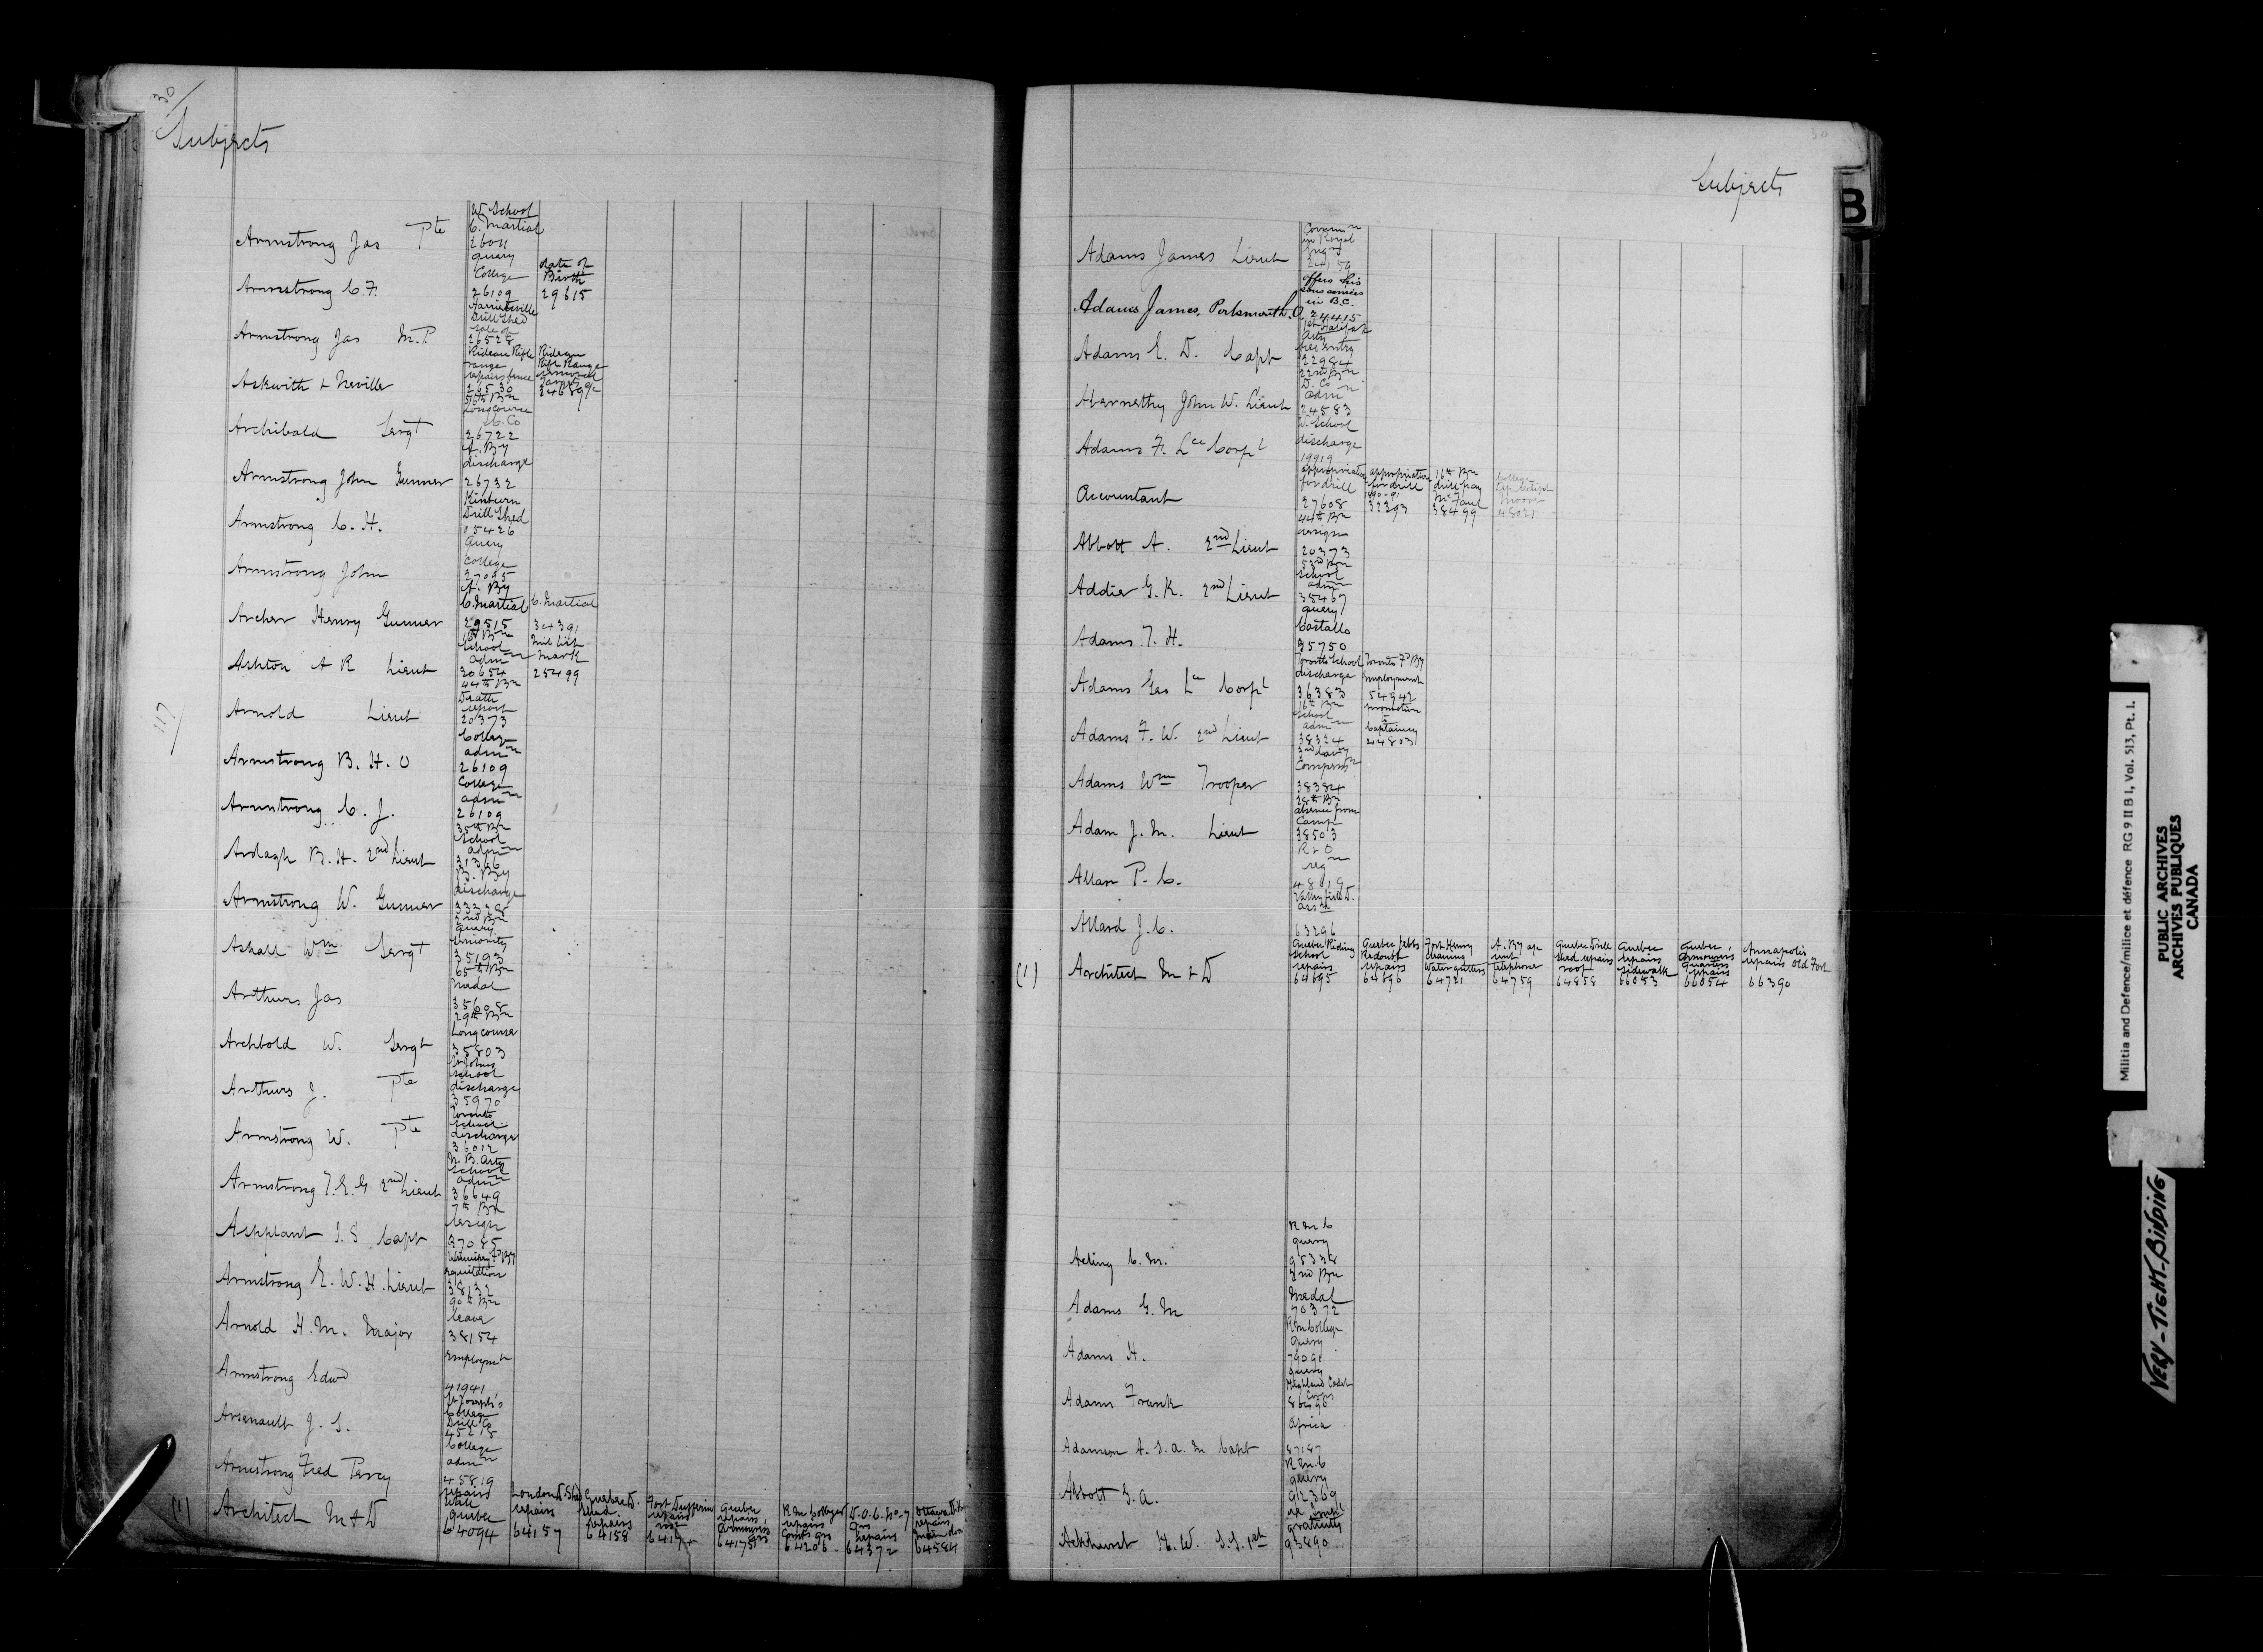 30
Subjects
W. School
C. Martial
Armstrong Jas Pte
26011
query
College
date of
Birth
Armstrong C. F.
26109
29615
Harrietsville
Drill Shed
sale of
Armstrong Jas M.P.
26528
Rideau Rifle
range
repairs fence
Rideau
Rifle Range
removal
Askwith & Neville
26530
34689
Long Course
Archibald Sergt
26722
A. By
discharge
Armstrong John Gunner
26732
Kinburn
Drill Shed
Armstrong C. H.
05426
Query
College
Armstrong John
27095
A. By
C. Martial
C. Martial
Archer Henry Gunner
29515
34391
School
admn
Mil List
mark
Ashton A R Lieut
30654
25499
44th Bn
Death
report
Arnold Lieut
20373
117
College
admn
Armstrong B. H. O
26109
College
admn
Armstrong C. J.
26109
35th Bn
School
admn
Ardagh B. H. 2nd Lieut
31366
B. By
discharge
Armstrong W. Gunner
33328
2nd Bn
query
seniority
Askall Wm Sergt
35193
65th Bn
Medal
Arthurs Jas
35608
29th Bn
Long course
Archbold W. Sergt
35803
St Johns
School
discharge
Arthurs J. Pte
35970
Toronto
School
discharge
Armstrong W. Pte
36012
N. B. Arty
School
admn
Armstrong T. E. G 2nd Lieut
36649
7th Bn
resign
Ashplant I. S Capt
37085
Winnipeg Fd By
equitation
Armstrong E. W. H. Lieut
38132
90th Bn
leave
Arnold H. M. Major
38154
Employmt
Armstrong Edwd
41941
St Joseph's
College
Drill Co
Arsenault J. S.
45218
College
admn
Armstrong Fred Percy
45819
(1) Architect M & D
repairs
Wall
Quebec
64094
London D Shed
repairs
64157
Quebec D.
Shed.
repairs
64158
Fort Dufferin
repairs
roof
6417
Quebec
repairs,
Armourers
qrs
64175
R M College
repairs
64206
D. O. C. No. 7
Qrs
repairs
64372
Ottawa D. H
repairs,
main door
64584
30
Subjects
B
Commn
in Royal
Engrs
Adams James Lieut
24159
offers his
sons services
in B.C.
Adams James, Portsmouth
24415
1st Halifax
Arty
Adams E. D. Capt
22984
22nd Bn
D. Co
admn
Abernethy John W. Lieut
24583
W. School
discharge
Adams F. Lce Corpl
19919
Accountant
appropriation
for drill
27608
appropriation
for drill
1890-91
32393
16th Bn
drill pay
38499
College
Moore
48021
44th Bn
resign
Abbott A. 2nd Lieut
20373
53rd Bn
School
admn
Addie G. K. 2nd Lieut
35467
query
Costallo
Adams T. H.
35750
Toronto School
discharge
Toronto Fd By
Employment
Adams Geo Lce Corpl
36383
54942
16th Bn
School
admn
promotion
to
Captaincy
Adams F. W. 2nd Lieut
38324
44803
3rd Cavry
Compensn
Adams Wm Trooper
38384
28th Bn
absence from
Camp
Adam J. M. Lieut
38503
R & O
reqn
Allan P. C.
48019
Valleyfield D.
Assn
Allard J. C.
63296
(1) Architect M & D
Quebec Riding
School
repairs
64695
Quebec Jebbs
Redoubt
repairs
64696
Fort Henry
cleaning
Water gutters
64721
A. By qr
unit
telephone
64759
Quebec Drill
Shed repairs
roof
64858
Quebec
repairs
sidewalk
66053
Quebec,
Armourers
quarters
repairs
66054
Annapolis
repairs Old Fort
66390
R M C
query
Acting C. M.
95328
2nd Bn
Medal
Adams G. M
70372
R M College
Query
Adams H.
79091
query
Highland Cadet
Corps
Adams Frank
86496
Africa
Adamson A. S. A. M Capt
87187
R M C
query
Abbott G. A.
92369
gratuity
Ackhurst H. W. S. S. 1st
93890
Militia and Defence/milice et défence RG 9 II B 1, Vol. 513, Pt. I.
PUBLIC ARCHIVES
ARCHIVES PUBLIQUES
CANADA
VERY-TIGHT-BINDING